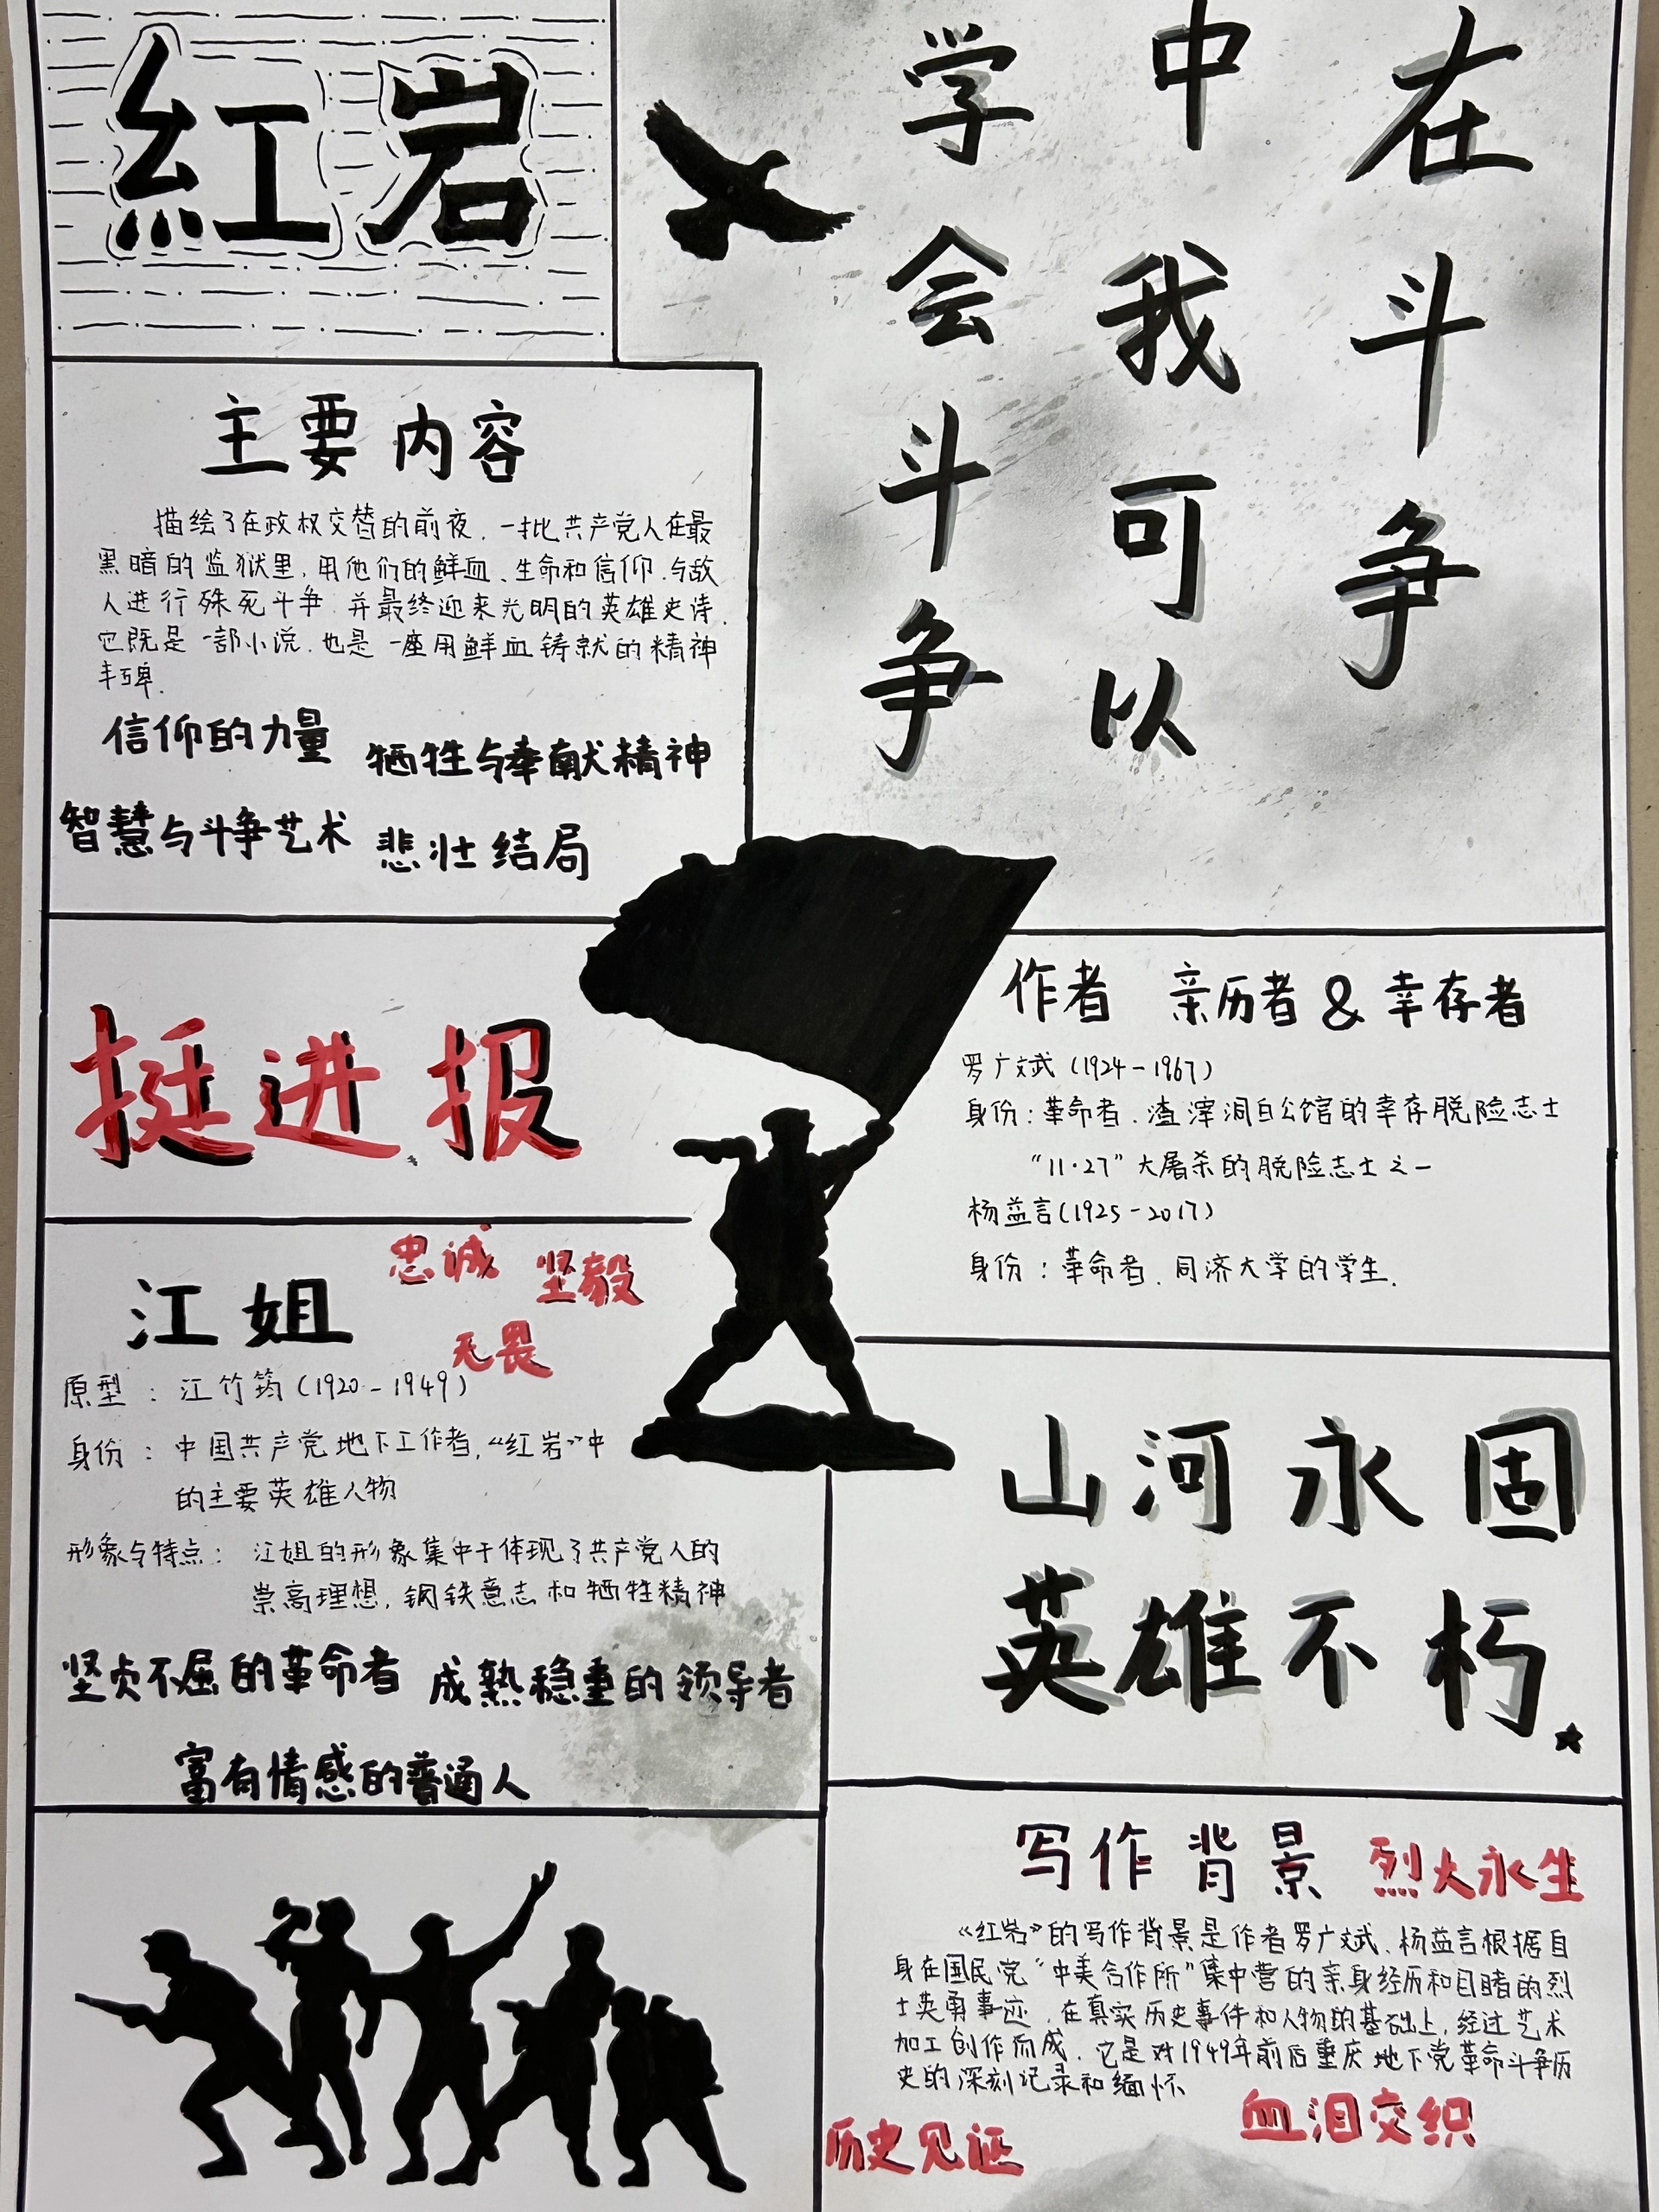 红岩
在斗争
中我可以
学会斗争
主要内容
描绘了在政权交替的前夜，一批共产党人在最
黑暗的监狱里，用他们的鲜血、生命和信仰，与敌
人进行殊死斗争，并最终迎来光明的英雄史诗，
它既是一部小说，也是一座用鲜血铸就的精神
丰碑.
信仰的力量 牺牲与奉献精神
智慧与斗争艺术 悲壮结局
挺进报
作者 亲历者&幸存者
罗广斌（1924-1967）
身份：革命者、渣滓洞白公馆的幸存脱险志士
“11·27”大屠杀的脱险志士之一
杨益言（1925-2017）
身份：革命者、同济大学的学生.
江姐
忠诚 坚毅
无畏
原型：江竹筠（1920-1949）
身份：中国共产党地下工作者，《红岩》中
的主要英雄人物
形象与特点：江姐的形象集中于体现了共产党人的
崇高理想，钢铁意志和牺牲精神
坚贞不屈的革命者 成熟稳重的领导者
富有情感的普通人
山河永固
英雄不朽
写作背景 烈火永生
《红岩》的写作背景是作者罗广斌、杨益言根据自
身在国民党“中美合作所”集中营的亲身经历和目睹的烈
士英勇事迹，在真实历史事件和人物的基础上，经过艺术
加工创作而成，它是对1949年前后重庆地下党革命斗争历
史的深刻记录和缅怀
血泪交织
历史见证